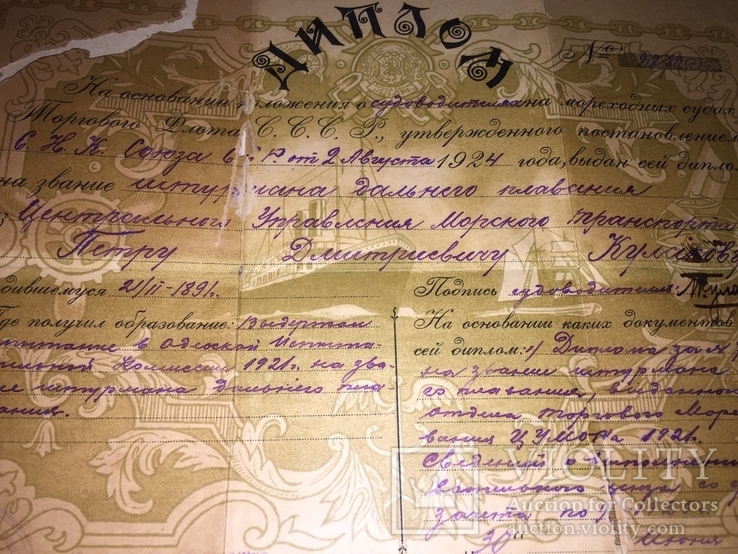 ДИПЛОМ
№
На основании положения о судоводителях на мореходных судах
Торгового Флота С.С.С.Р., утвержденного постановлением
С. Н. К. Союза от 2 Августа 1924 года, выдан сей дипло
на звание штурмана дальнего плавания
из Центрального Управления Морского Транспорта
Петру Дмитриевичу
дившемуся 21/II-1891.
Подпись судоводителя:
Где получил образование: Выдержал
испытание в Одесской Испыта
тельной Комиссии 1921г. на зва
ние штурмана дальнего пла
вания.
На основании каких документов
сей диплом: 1) Диплома за
на звание штурмана
го плавания, выданного
отдела торгового море
вания ЦУМОРа 1921г.
Сведений
зачета по
30" Июня
VIOLITY
Auction for Collectors
auction.violity.com